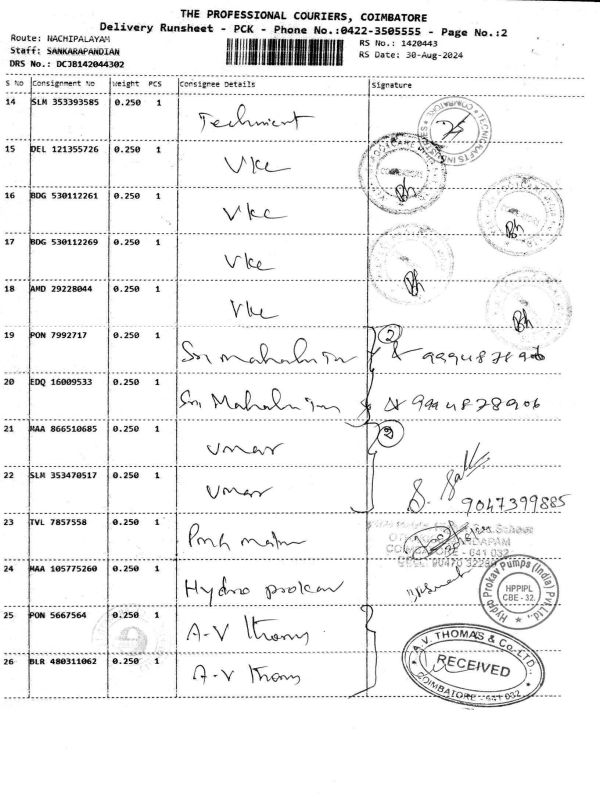 THE PROFESSIONAL COURIERS, COIMBATORE
Delivery Runsheet - PCK - Phone No.:0422-3505555 - Page No.:2
Route: NACHIPALAYAM
RS No.: 1420443
Staff: SANKARAPANDIAN
RS Date: 30-Aug-2024
DRS No.: DCJB142044302
S No Consignment No Weight PCS Consignee Details Signature
14 SLM 353393585 0.250 1
15 DEL 121355726 0.250 1 Vkc
16 BDG 530112261 0.250 1 Vkc
17 BDG 530112269 0.250 1 Vkc
18 AMD 29228044 0.250 1 Vkc
19 PON 7992717 0.250 1 Sri 2
20 EDQ 16009533 0.250 1 Sri
21 MAA 866510685 0.250 1 Umar 2
22 SLM 353470517 0.250 1 Umar
9047399885
23 TVL 7857558 0.250 1
COIMBATORE - 641 032
24 MAA 105775260 0.250 1 Hydro prokav
Hydro Prokav Pumps (India) Pvt.Ltd.,
HPPIPL
CBE - 32
25 PON 5667564 0.250 1 A-V Thomas
26 BLR 480311062 0.250 1 A-V Thomas
A.V. THOMAS & Co-LTD.,
RECEIVED
COIMBATORE - 641 032